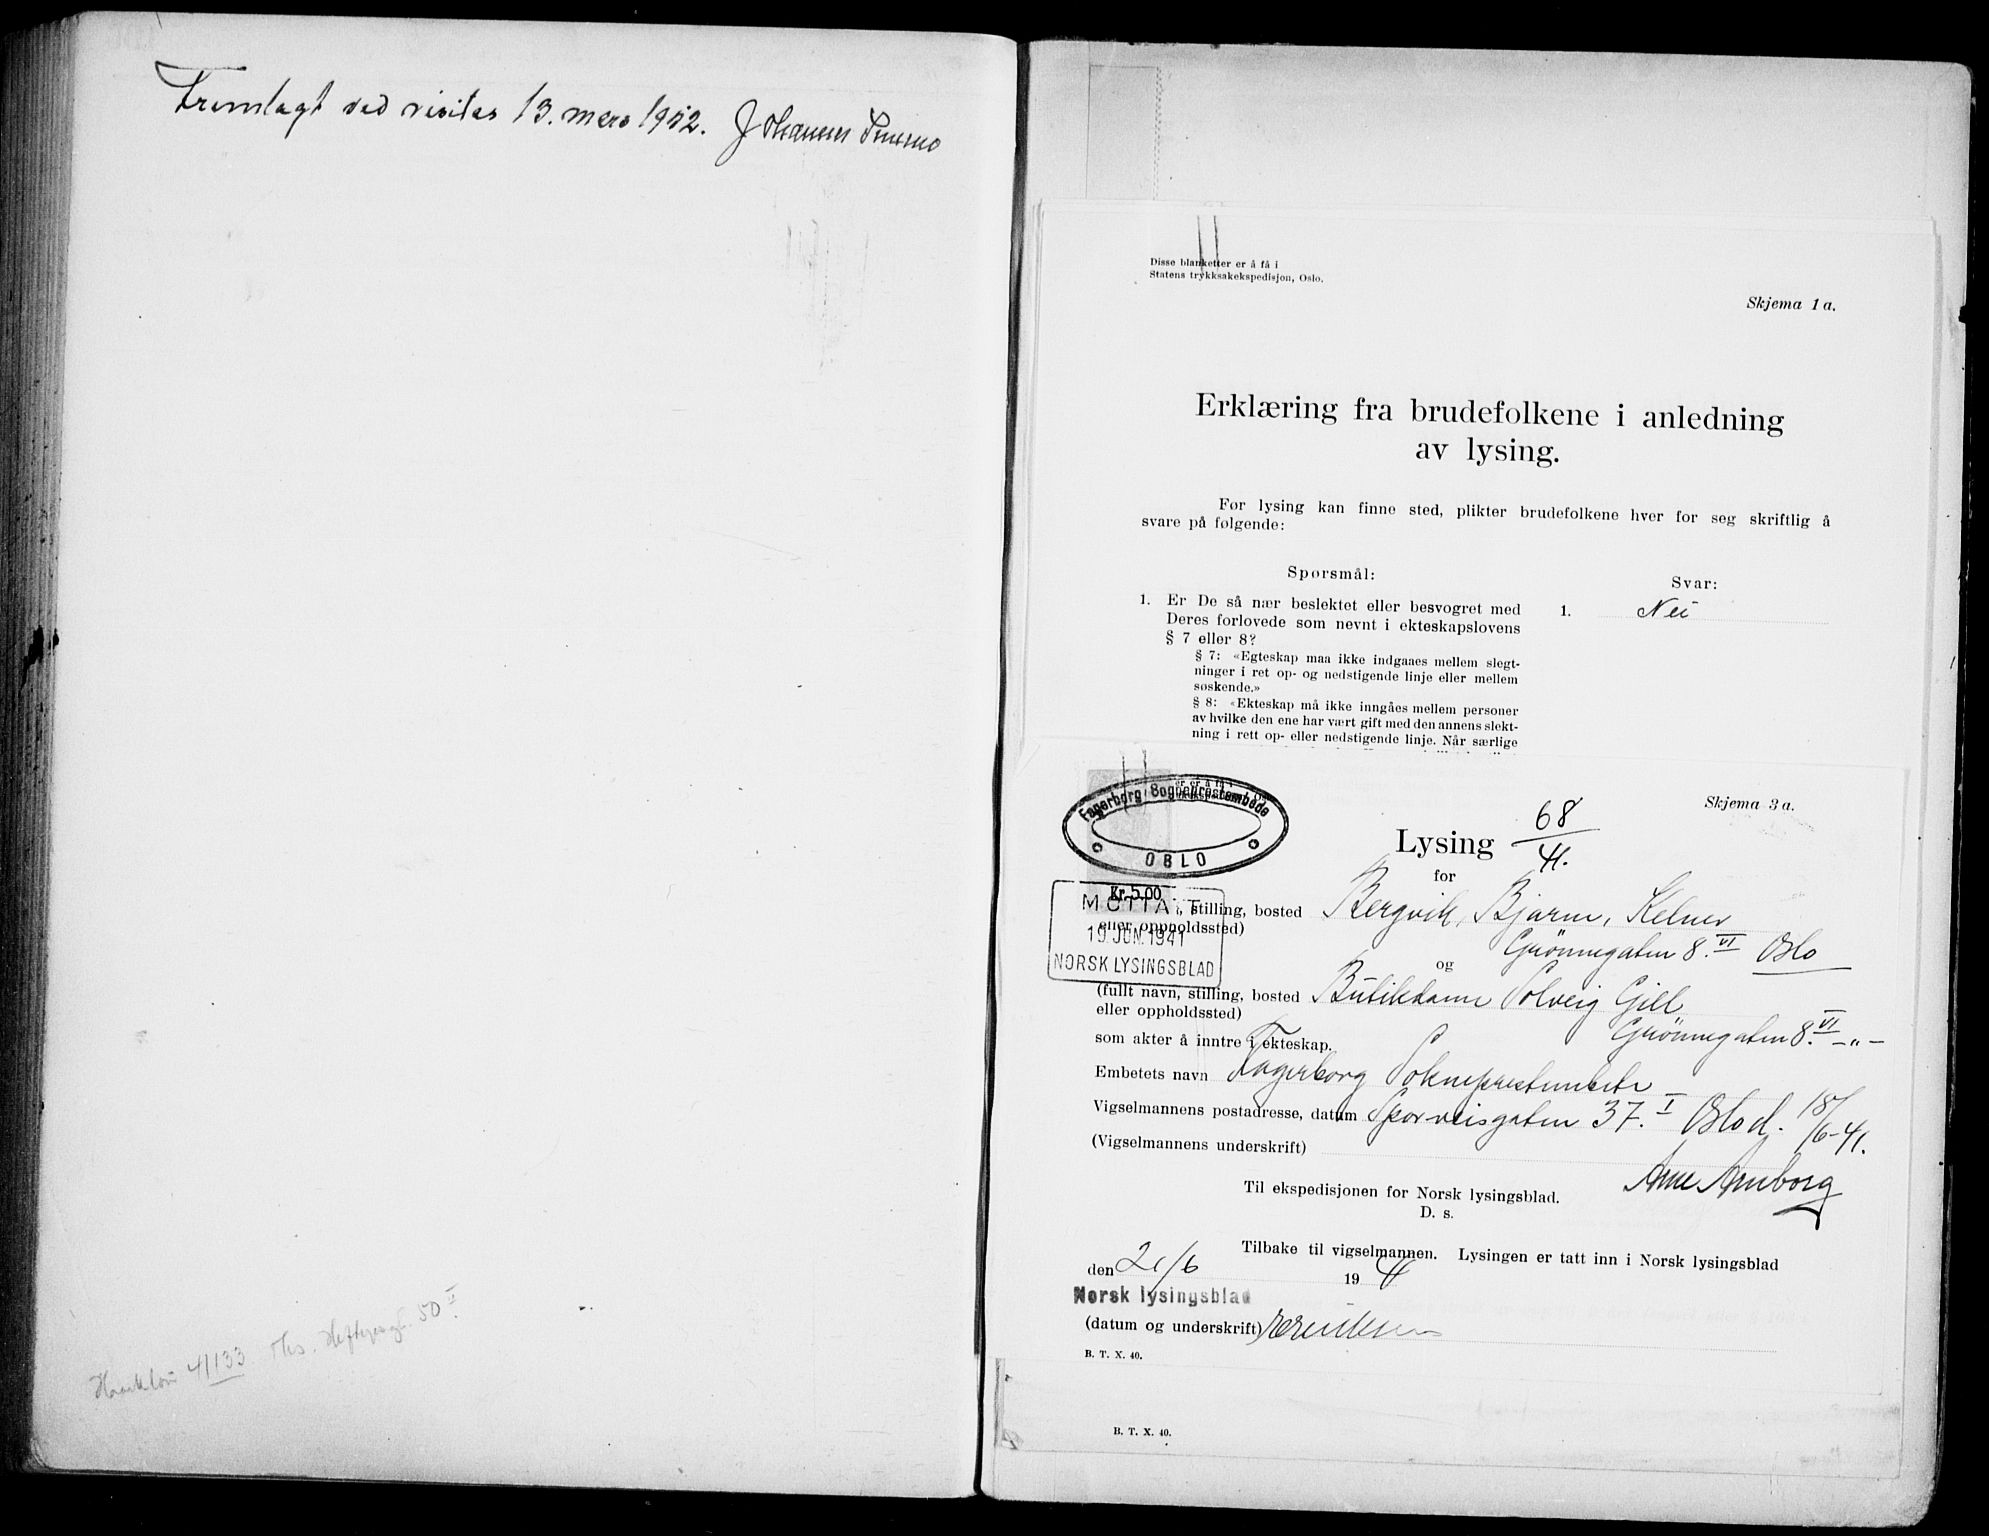 Fremlagt ved visitas 13. mars 1952. Johannes Smemo
41/133 ths. Heftyesgt. 50 II
Disse blanketter er å få i
Statens trykksakekspedisjon, Oslo.
Skjema 1 a.
Erklæring fra brudefolkene i anledning
av lysing.
Før lysing kan finne sted, plikter brudefolkene hver for seg skriftlig å
svare på følgende:
Spørsmål:
Svar:
1. Er De så nær beslektet eller besvogret med
Deres forlovede som nevnt i ekteskapslovens
§ 7 eller 8?
1. Nei
§ 7: «Egteskap maa ikke indgaaes mellem slegt-
ninger i ret op- og nedstigende linje eller mellem
søskende.»
§ 8: «Ekteskap må ikke inngåes mellem personer
av hvilke den ene har vært gift med den annens slekt-
ning i rett op- eller nedstigende linje. Når særlige
er er å få i
Fagerborg Sogneprestembede
OSLO
Skjema 3 a.
Lysing 68/41.
for
Kr. 5.00
MOTTATT
19. JUN. 1941
NORSK LYSINGSBLAD
, stilling, bosted Bergvik, Bjarne, Kelner
eller oppholdssted)
Grønnegaten 8. VI Oslo
og
(fullt navn, stilling, bosted Butikdame Solveig Gill
eller oppholdssted)
Grønnegaten 8. VI -"-
som akter å inntre i ekteskap.
Embetets navn Fagerborg Sokneprestembete
Vigselmannens postadresse, datum Sporveisgaten 37. I Oslo d. 18/6-41.
(Vigselmannens underskrift)
Arne Arneborg
Til ekspedisjonen for Norsk lysingsblad.
D. s.
Tilbake til vigselmannen. Lysingen er tatt inn i Norsk lysingsblad
den 21/6 19 41
Norsk lysingsblad
(datum og underskrift) Eriksen
B. T. X. 40.
B. T. X. 40.